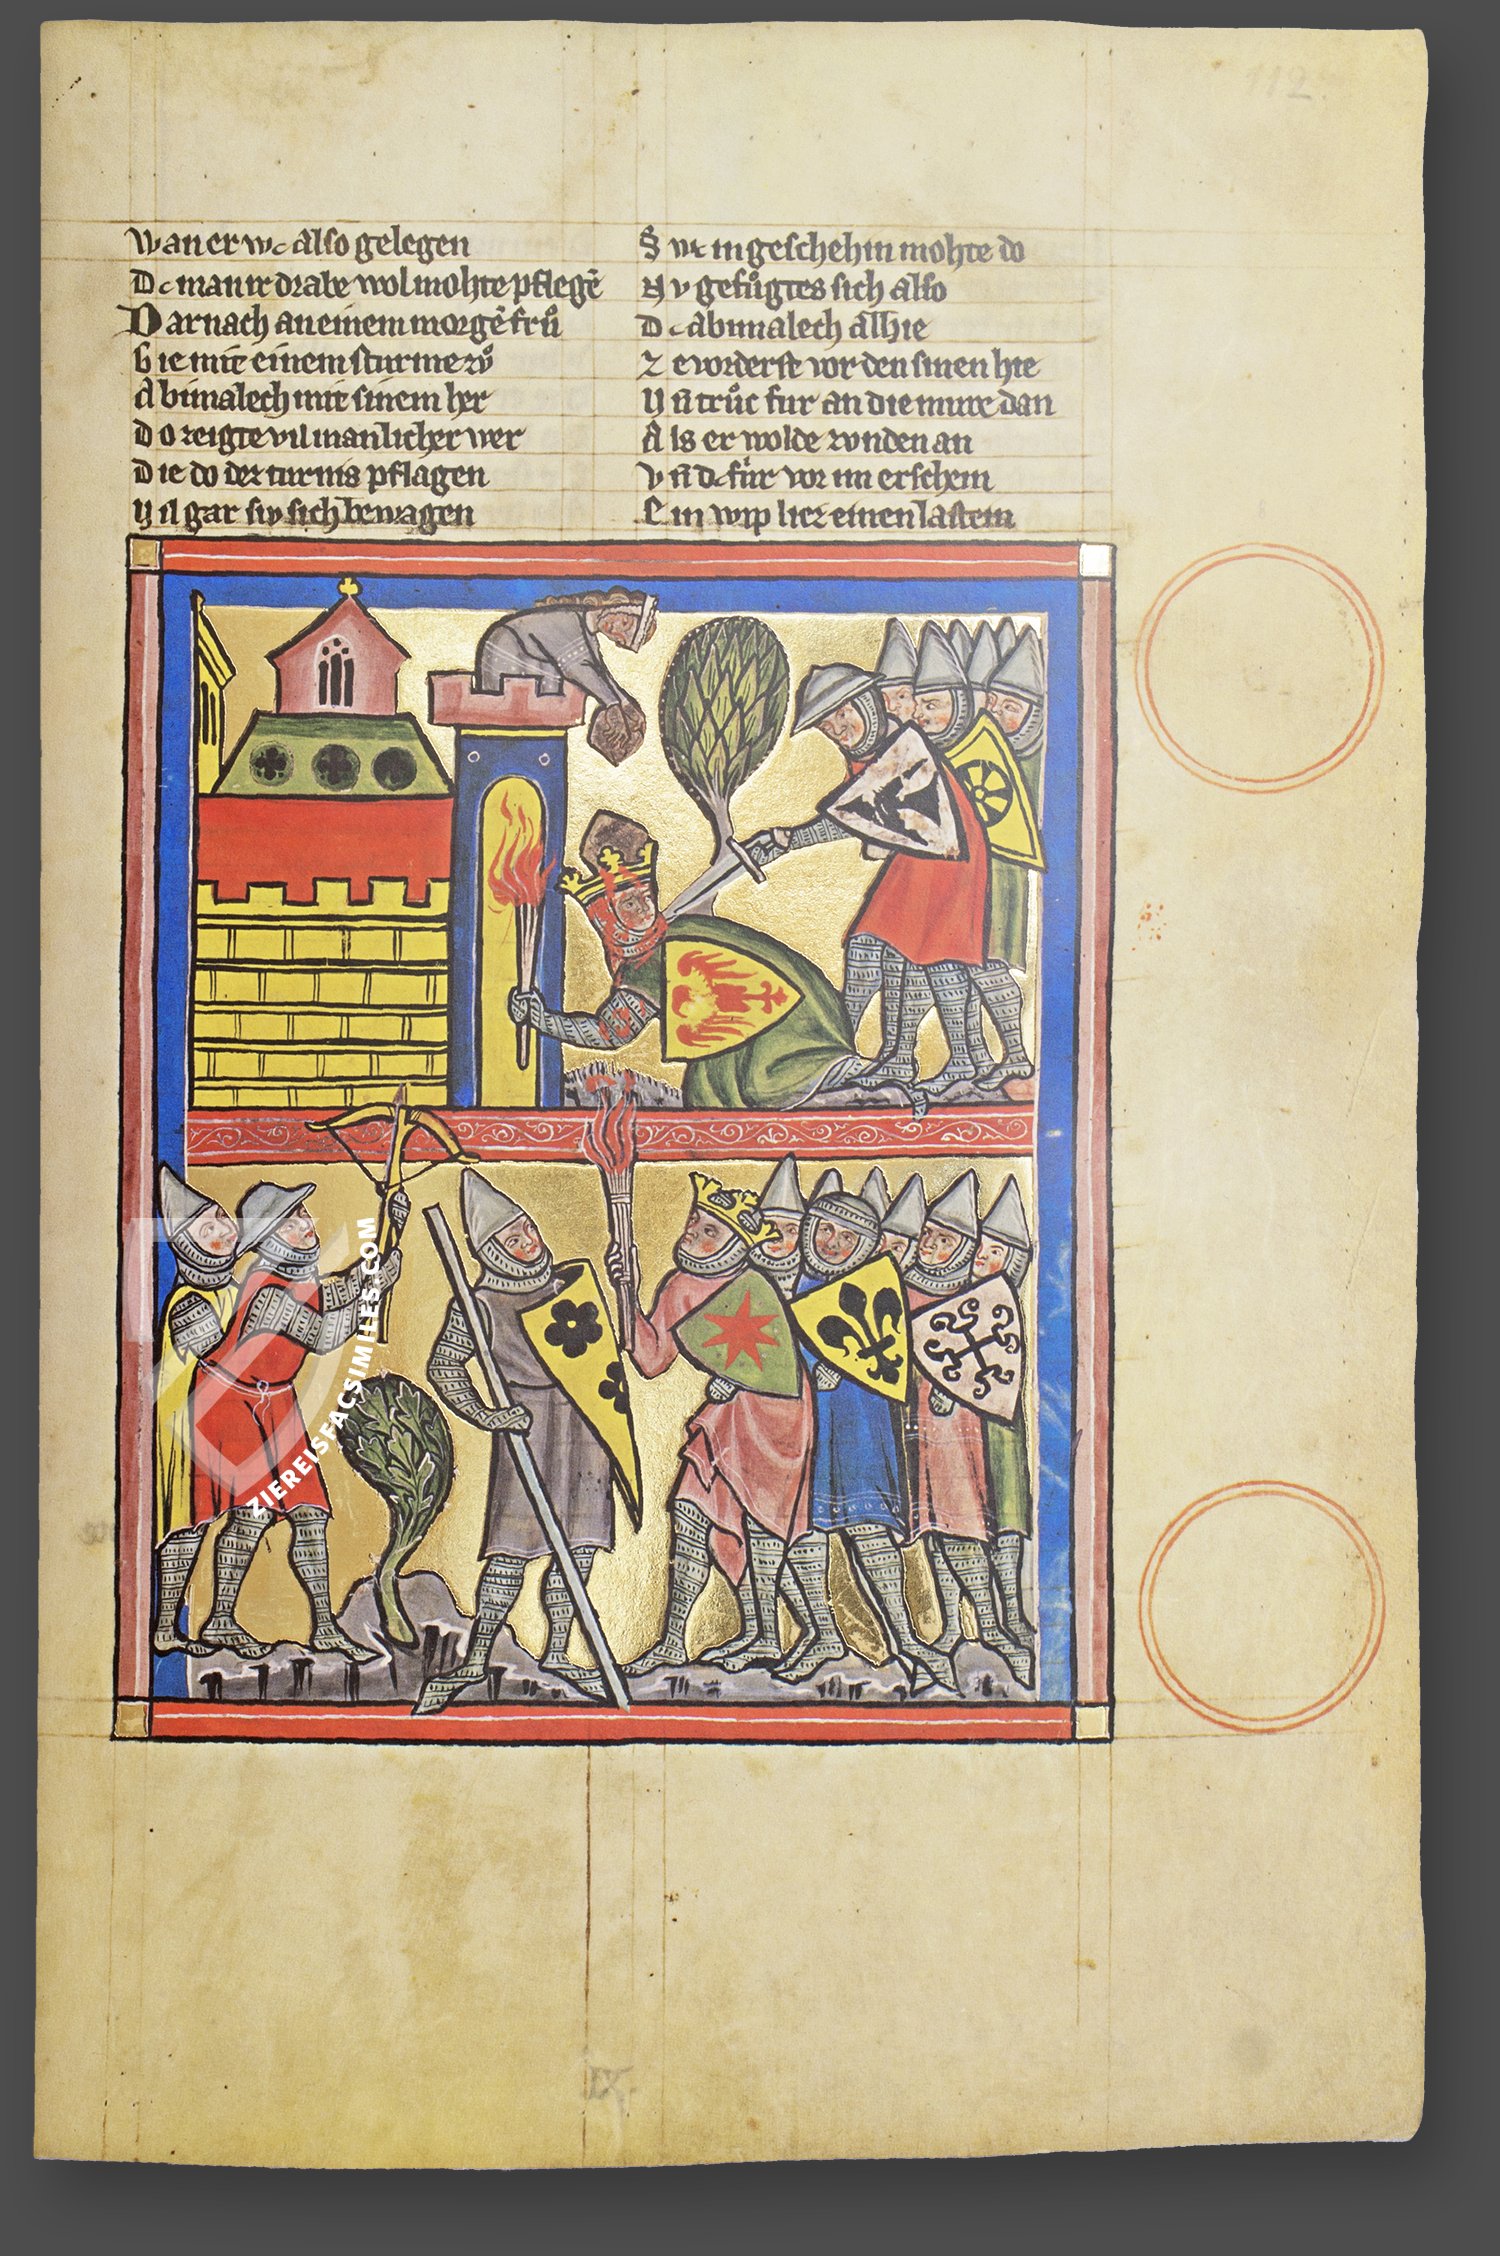 112
Wan er wc also gelegen
Dc man ir drabe wol mohte pflegē
Darnach an einem morgē frů
Gie mit einem sturme zů
Abimalech mit sinem her
Do zeigte vil manlicher wer
Die do der turnis pflagen
Vil gar siv sich bewagen
Swc in geschehin mohte do
Nv gefůgtes sich also
Dc abimalech alhie
Zevorderst vor den sinen hie
Vn̄ trůc fur an die mure dan
Als er wolde zvnden an
Vn̄ dc fúr vor im erschein
Ein wip liez einen lastein
ZIEREISFACSIMILES.COM
IX.